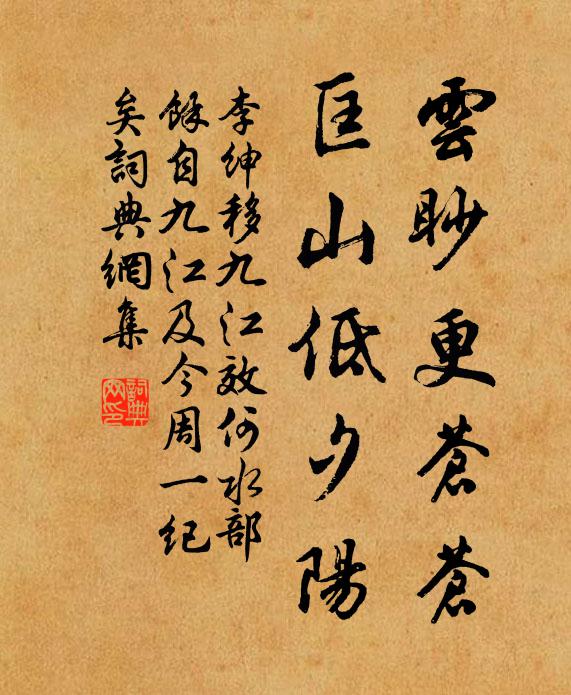 雲眇更蒼蒼
匡山低夕陽
李紳移九江效何水部
餘自九江及今周一紀
矣詞典網集
詞典網印